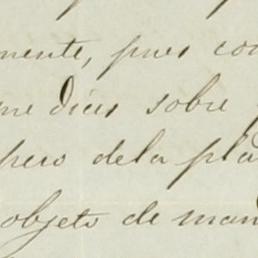 mente, pues con
me dices sobre
pero dela pla
objeto de man